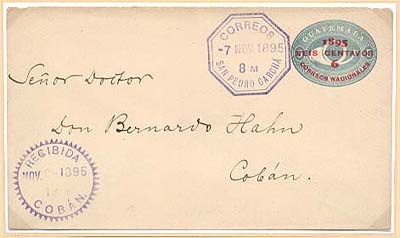 CORREOS
-7 NOV 1895
8 M
SAN PEDRO CARCHA
GUATEMALA
1895
SEIS CENTAVOS
6
CORREOS NACIONALES
Señor Doctor
Don Bernardo Hahn
Cobán.
RECIBIDA
NOV 1895
COBÁN.